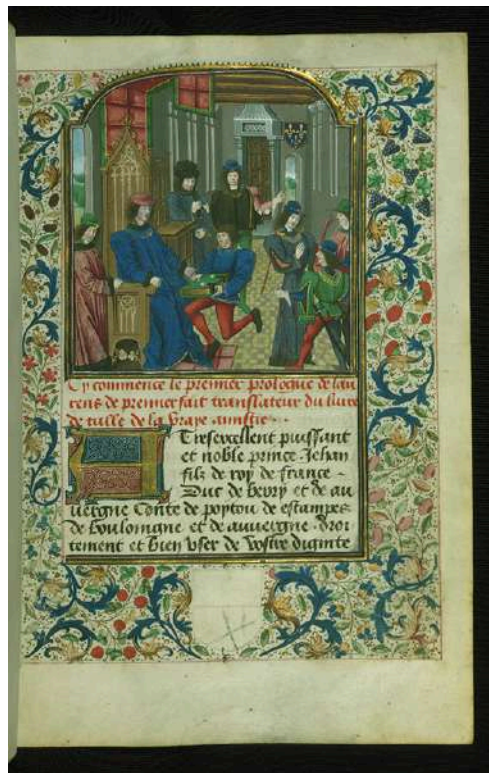 Cy commence le premier prologue de lau
rens de premier fait translateur du livre
de tulle de la vraye amistie
Tresexcellent puissant
et noble prince Jehan
filz de roy de france
Duc de berry et de au
uergne Conte de poytou de estampes
de boulongne et de auuergne Droi
tement et bien vser de vostre dignite